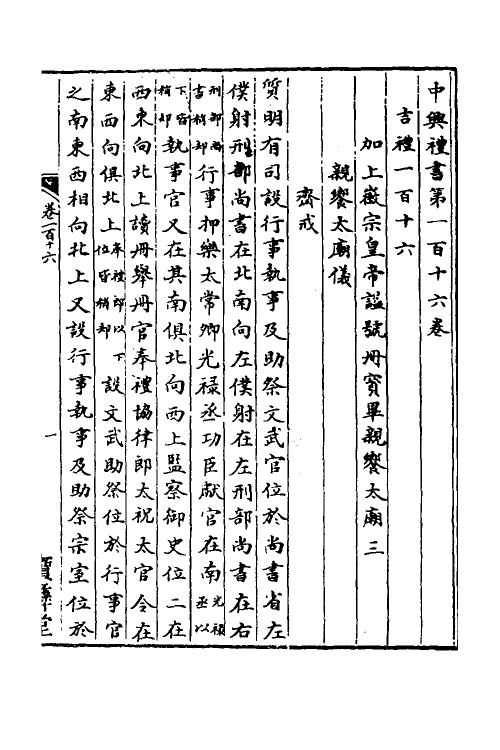 中興禮書第一百十六卷
吉禮一百十六
加上徽宗皇帝謚號冊寶畢親饗太廟三
親饗太廟儀
齋戒
質明有司設行事執事及助祭文武官位於尚書省左
僕射刑部尚書在北南向左僕射在左刑部尚書在右
刑部尚書稍却行事押樂太常卿光祿丞功臣獻官在南光祿丞以
下皆稍却執事官又在其南俱北向西上監察御史位二在
西東向北上讀冊舉冊官奉禮協律郎太祝太官令在
東西向俱北上奉禮郎以下位皆稍却設文武助祭位於行事官
之南東西相向北上又設行事執事及助祭宗室位於
卷一百十六
一